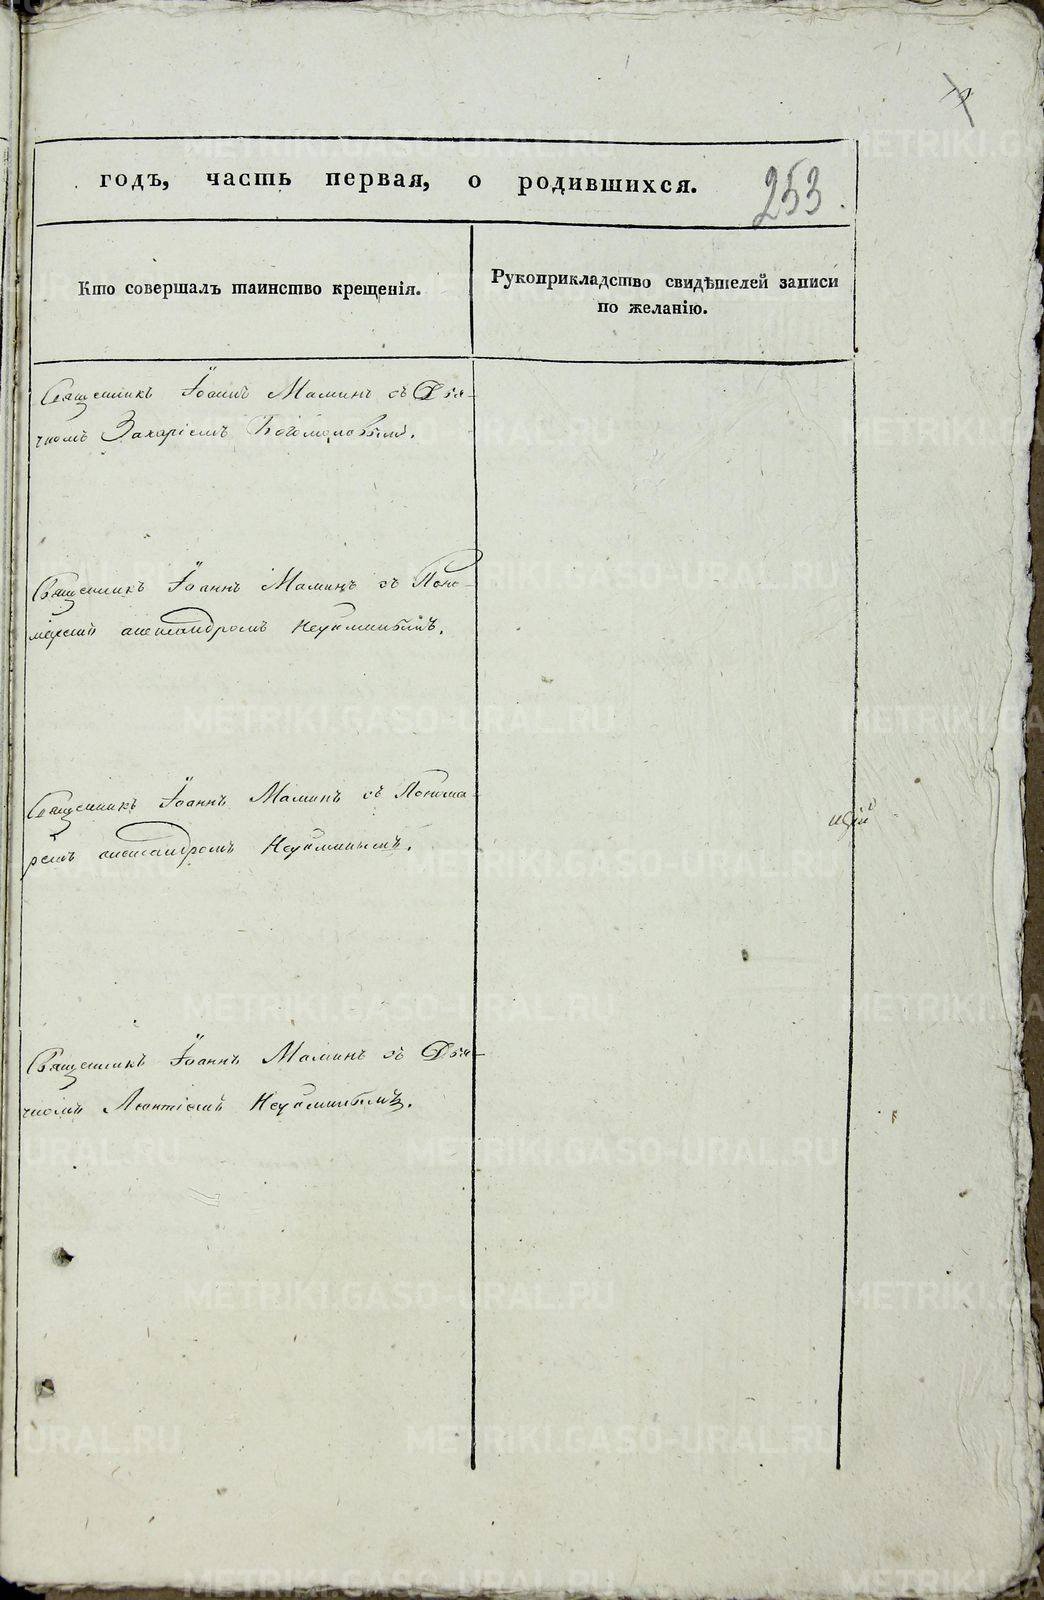 годъ, часть первая, о родившихся.
253.
Кто совершалъ таинство крещенія.
Рукоприкладство свидѣтелей записи
по желанію.
Священникъ Іоаннъ Маминъ съ Дья-
чкомъ Захаріемъ Богомоловымъ.
Священникъ Іоаннъ Маминъ съ Поно-
маремъ Неуйминымъ.
Священникъ Іоаннъ Маминъ съ Понома-
ремъ Неуйминымъ.
Священникъ Іоаннъ Маминъ съ Дья-
чкомъ Леонтіемъ Неуйминымъ.
METRIKI.GASO-URAL.RU